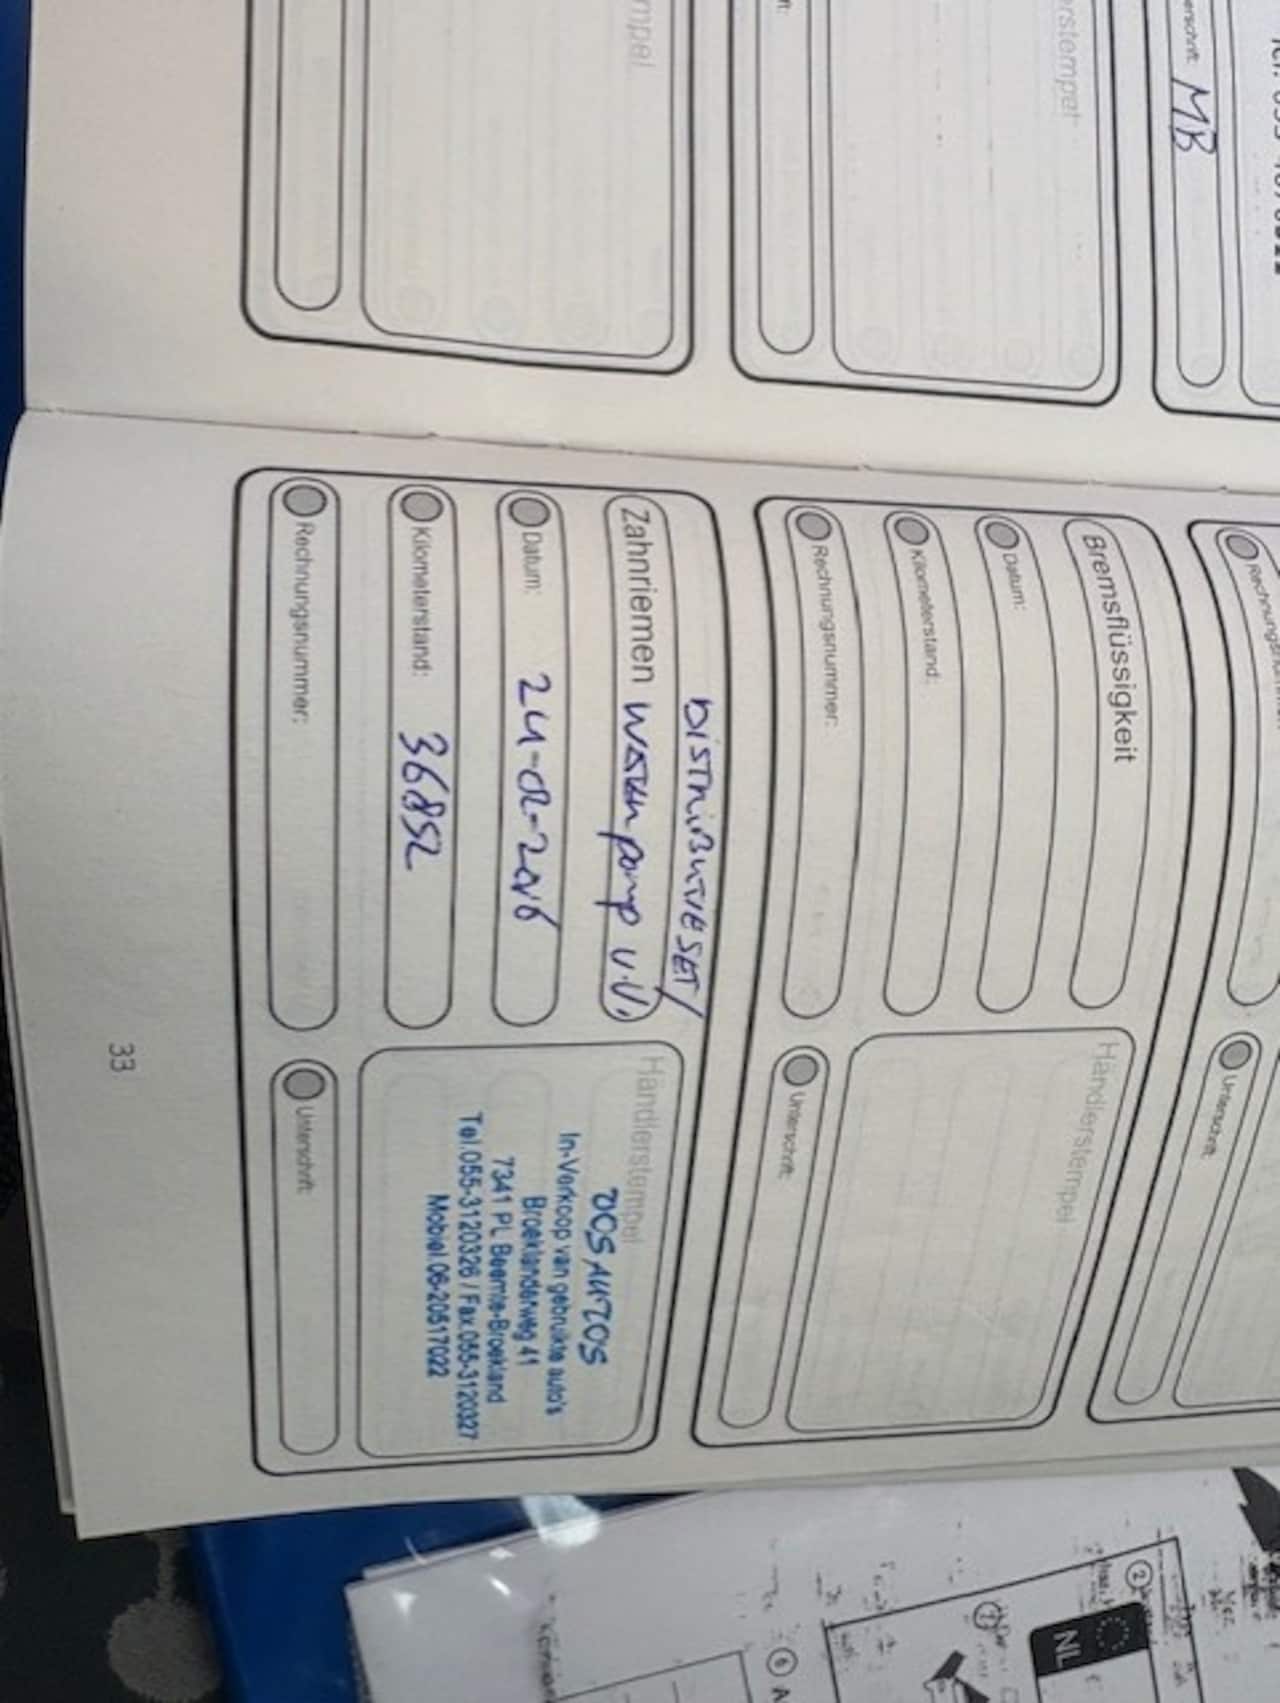 mpel
erstempel
erschrift:
MB
Rechnungsnummer:
Unterschrift:
Bremsflüssigkeit
Datum:
Kilometerstand:
Rechnungsnummer:
Händlerstempel
Unterschrift:
DISTRIBUTIE SET/
Zahnriemen WATERPOMP V.V.
Datum: 24-02-2016
Kilometerstand: 36852
Rechnungsnummer:
Händlerstempel
DOS AUTOS
In-Verkoop van gebruikte auto's
Broeklanderweg 41
7341 PL Beemte-Broekland
Tel.055-3120326 / Fax.055-3120327
Mobiel.06-20517022
Unterschrift:
33
NL